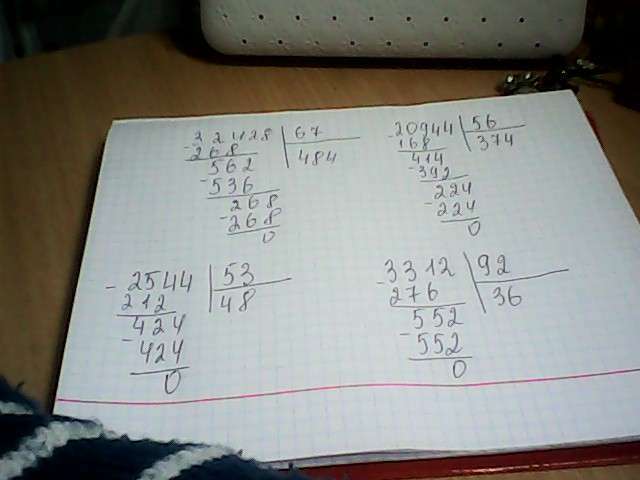 32428 67
- 268 484
562
- 536
268
- 268
0
20944 56
- 168 374
414
- 392
224
- 224
0
- 2544 53
212 48
424
- 424
0
3312 92
- 276 36
552
- 552
0